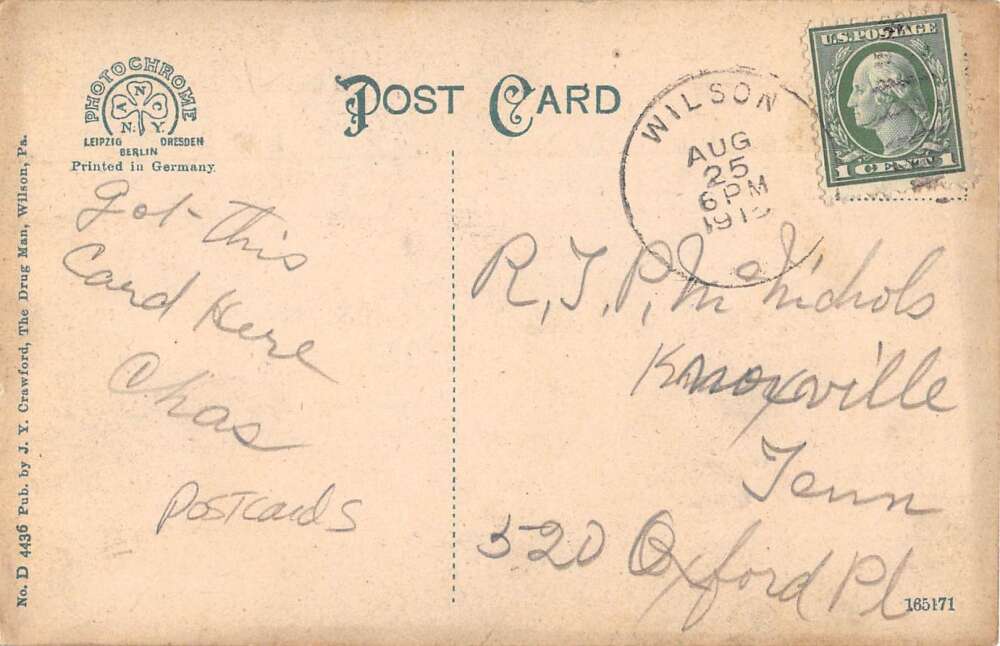 PHOTOCHROME
ANCO
N.Y.
LEIPZIG DRESDEN
BERLIN
Printed in Germany
POST CARD
WILSON
AUG
25
6 PM
U.S. POSTAGE
1 CENT 1
No. D 4436 Pub. by J. Y. Crawford, The Drug Man, Wilson, Pa.
Got This
Card Here
Chas
Postcards
R, J, P, Mc Nichols
Knoxville
Tenn
520 Oxford Pl
165171